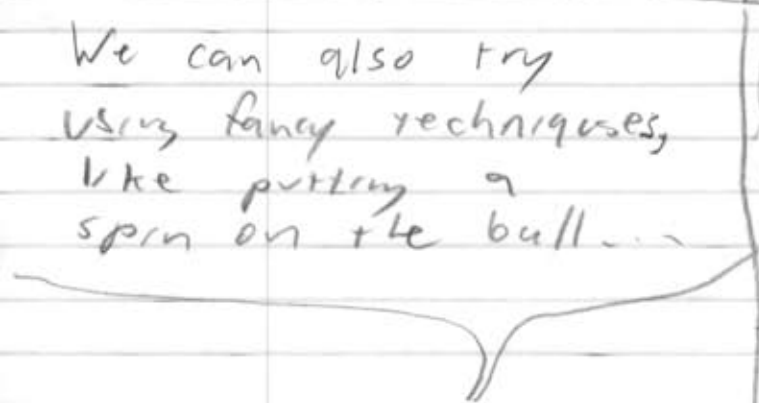 We can also try
using fancy techniquses,
like putting a
spin on the ball....